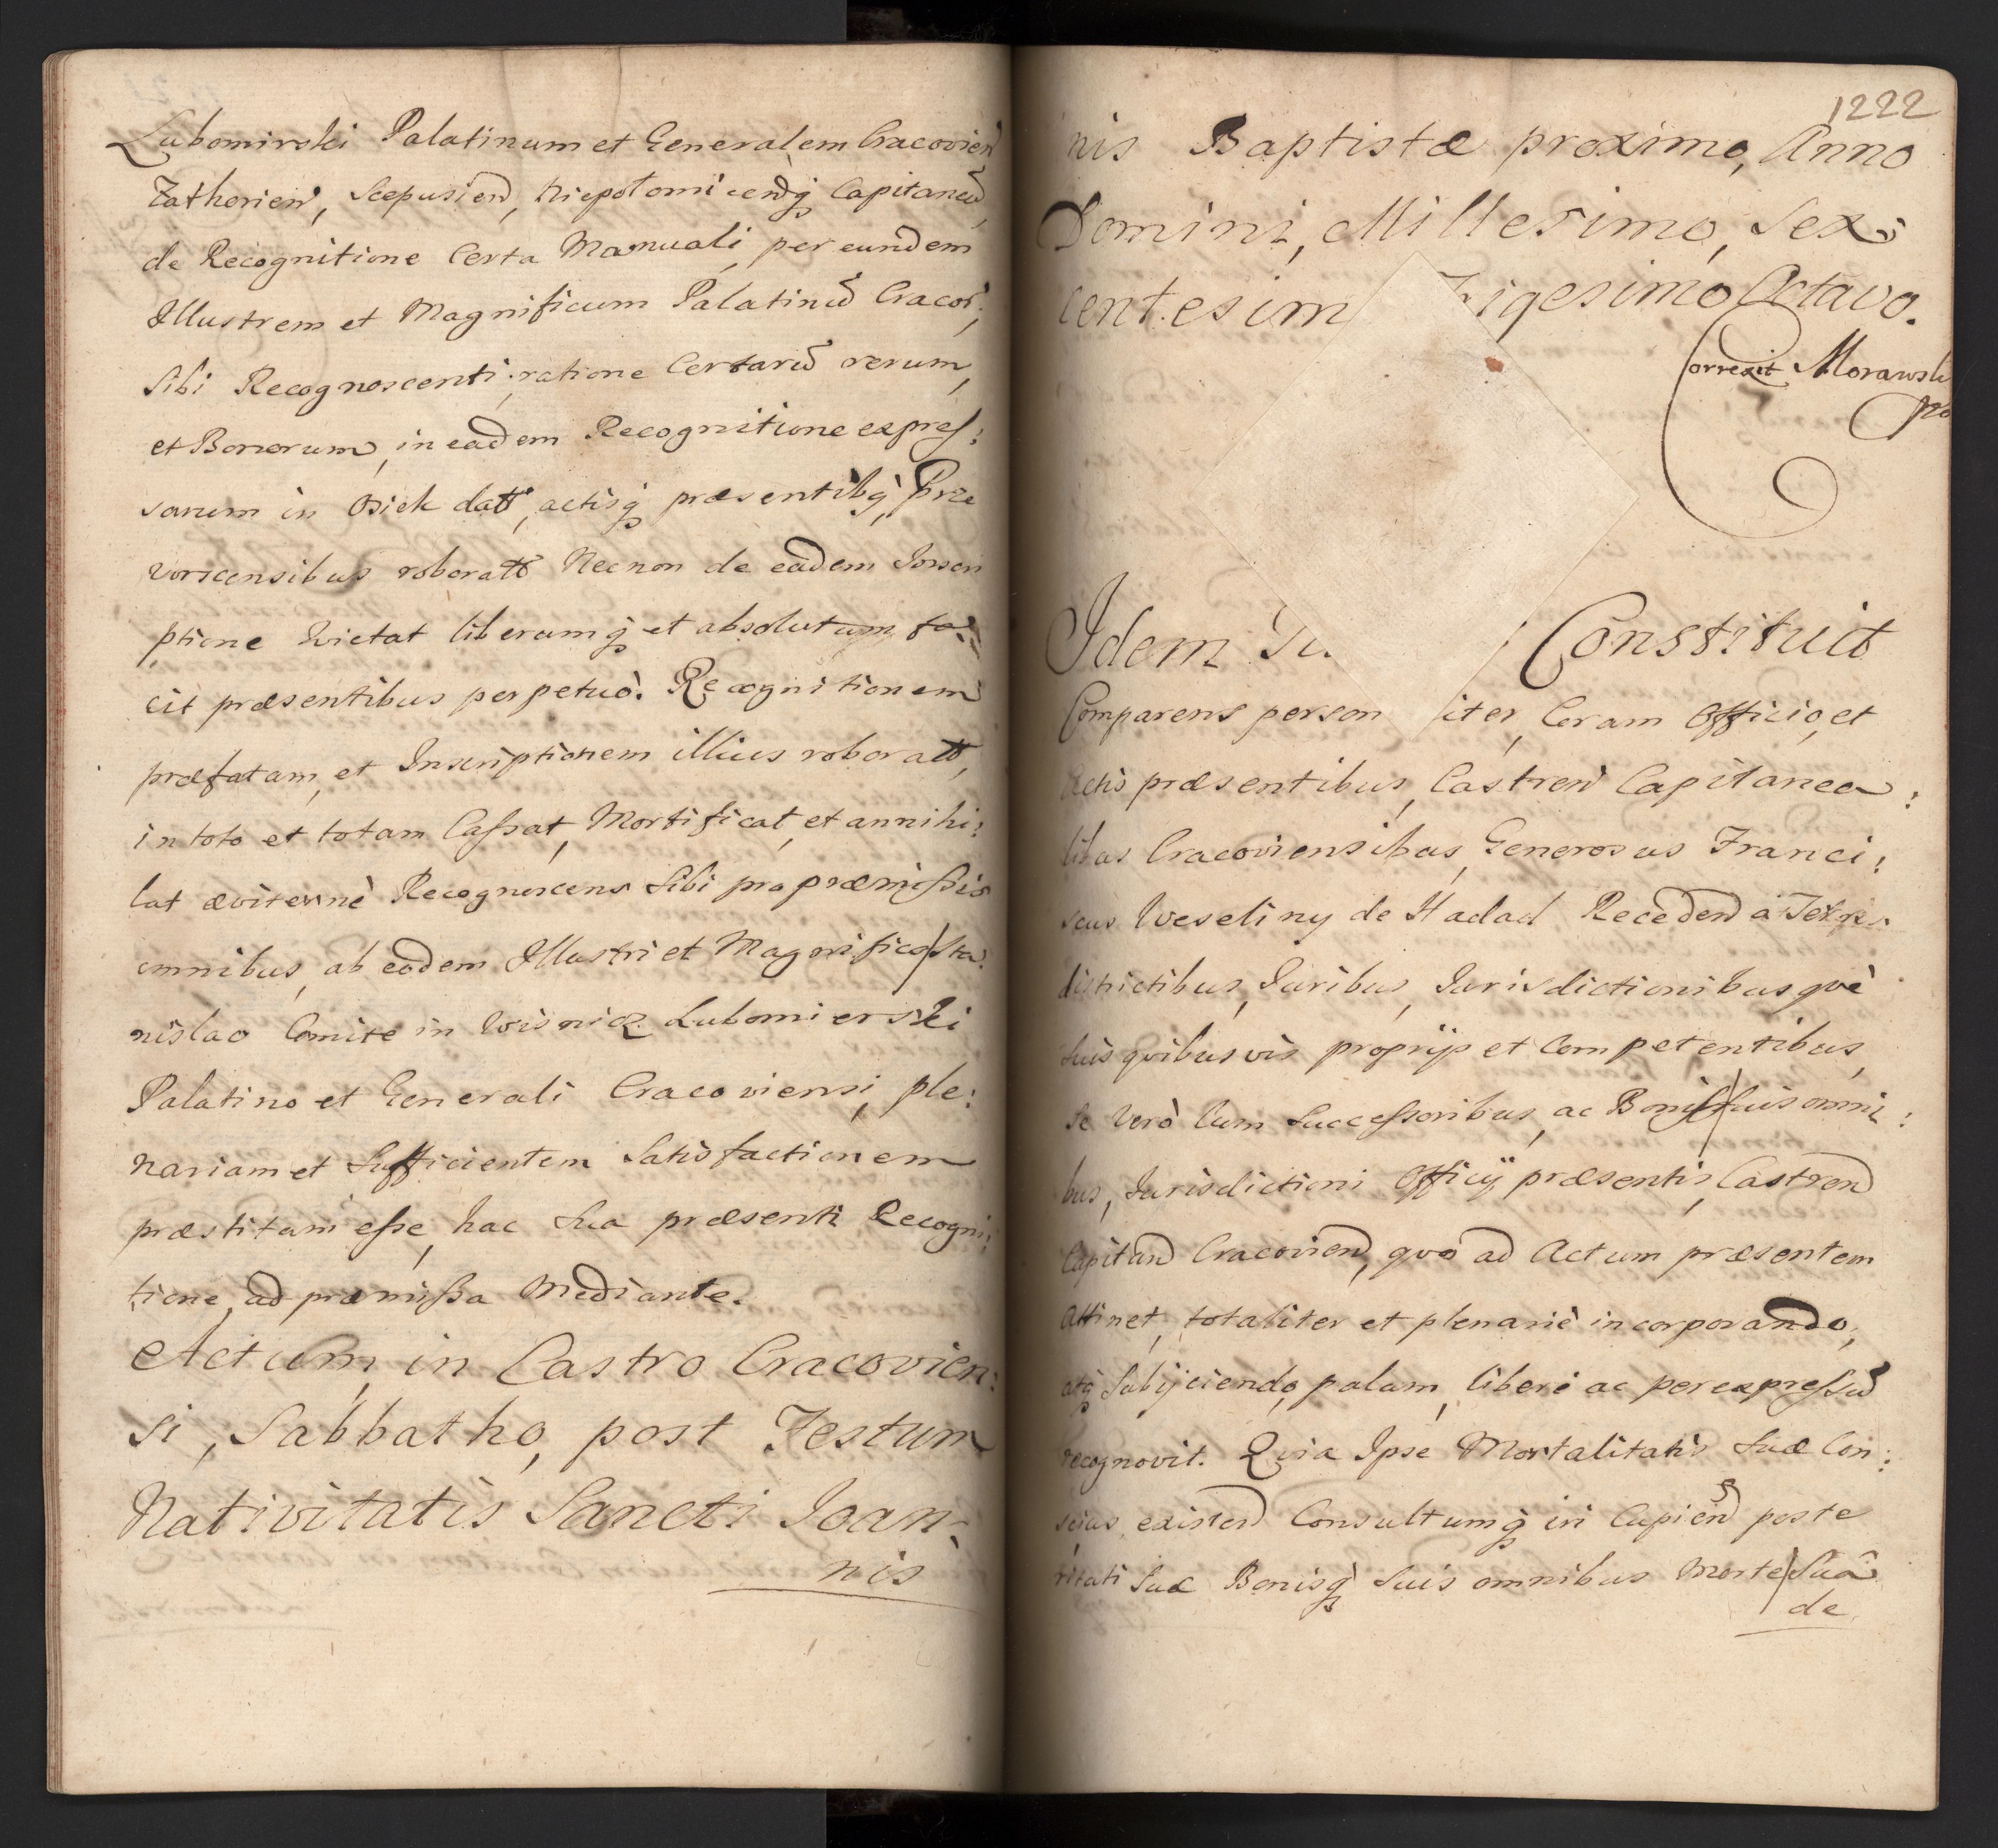 Lubomirski Palatinum et Generalem Cracovien
Zathorien, Scepusien, Niepolomicenq Capitaneu
de Recognitione Certa Manuali, per eundem
Illustrem et Magnificum Palatinu Cracov:,
Sibi Recognoscenti, ratione Certaru rerum,
et Bonorum, in eadem Recognitione expres:
sarum in Osiek datt, actisq præsentibq, Prze
vorscensibus roboratt Necnon de eadem Inscri
ptione Quietat liberumq et absolutum fa:
cit præsentibus perpetuò. Recognitionem
præfatam, et Inscriptionem illius roboratt,
in toto et totam Cassat, Mortificat, et annihi:
lat æviternè Recognoscens Sibi pro præmissis
omnibus, ab eodem Illustri et Magnifico Sta:
nislao Comite in Wisnicz Lubomierski
Palatino et Generali Cracoviensi, ple:
nariam et Sufficientem Satisfactionem
præstitam esse, hac Sua præsenti Recogni:
tione, ad præmissa Mediante.
Actum, in Castro Cracovien:
si, Sabbatho, post Festum
Nativitatis Sancti Ioan:
nis
1222
nis Baptistæ proximo, Anno
Domini, Millesimo, Sex:
centesim Trigesimo Octavo.
Correxit Morawski
Idem Constituit
Comparens person iter, Coram Officio, et
Actis præsentibus, Castren Capitanea:
libus Cracoviensibus, Generosus Franci:
scus Weseliny de Hadad Receden à Terris
districtibus, Iuribus, Iurisdictionibusquè
Suis quibusvis proprijs et Competentibus,
Se verò Cum Successoribus, ac Bonis Suis omni:
bus, Iurisdictioni Officij præsentis, Castren
Capitan Cracovien, quo ad Actum præsentem
Attinet, totaliter et plenariè incorporando,
atq Subijciendo, palam, liberè ac per expressu
recognovit. Quia Ipse Mortalitatis Suæ Con:
scius existen Consultumq iri Cupien poste
ritati Suæ Bonisq Suis omnibus Morte Suâ
de